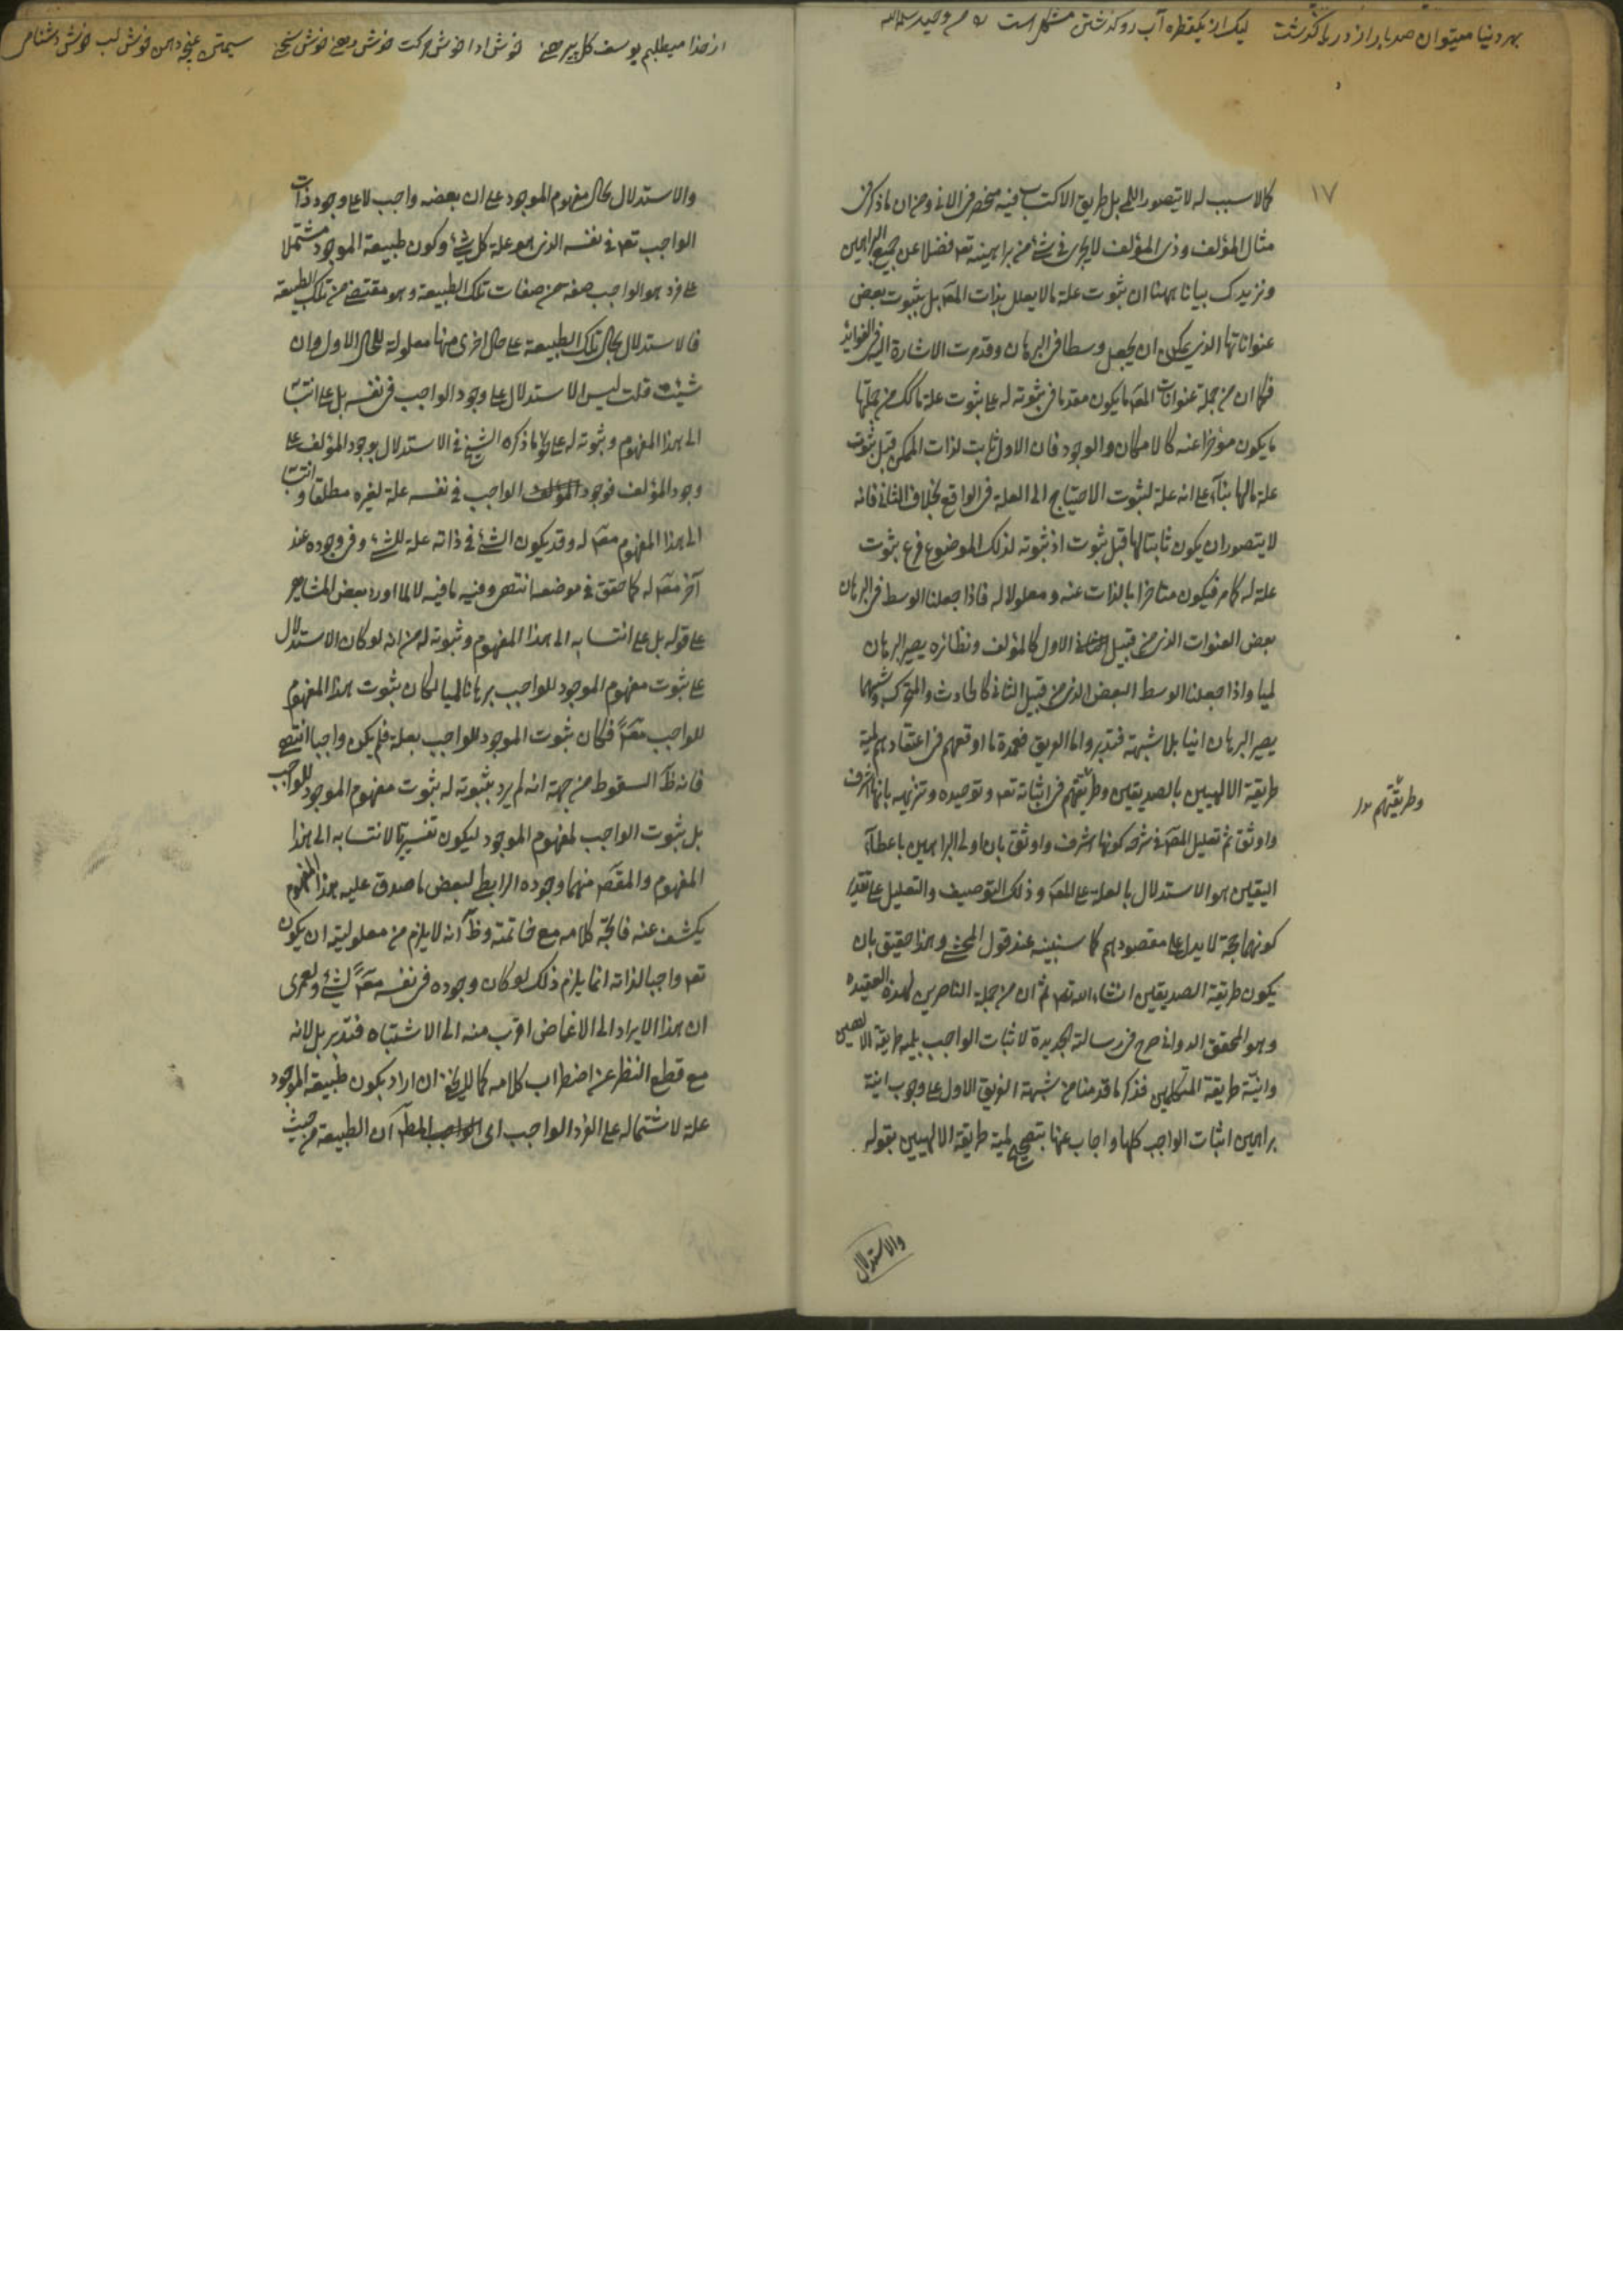 بهر دنیا میتوان صد بار از دریا گذشت لیک از یکقطره آب رو گذشتن مشکل است
۱۷
کالا سبب له لا یتصور اللمی بل طریق الاکتساب فیه منحصر فی الانی ومن ان ما ذکر فی
مثال المؤلف وذی المؤلف لا یجری فی شئ من براهینه تعه فضلا عن جمیع البراهین
ونزیدک بیانا ههنا ان ثبوت علة ما لا یعلل بذات المعه بل بثبوت بعض
عنواناتها الذی یمکن ان یجعل وسطا فی البرهان وقد مرت الاشارة الیه فی الفواید
فکما ان من جملة عنوانات المعه ما یکون مقدما فی ثبوته له علی ثبوت علة ما کک من جملتها
ما یکون مؤخرا عنه کالامکان والوجود فان الاول ثابت لذات الممکن قبل ثبوت
علة ما لها بناء علی انه علة لثبوت الاحتیاج الی العلة فی الواقع بخلاف الثانی فانه
لا یتصور ان یکون ثابتا لها قبل ثبوت اذ ثبوته لذلک الموضوع فرع ثبوت
علة له کما مر فیکون متاخرا بالذات عنه ومعلولا له فاذا جعلنا الوسط فی البرهان
بعض العنوات الذی من قبیل الاول کالمؤلف ونظائره یصیر البرهان
لمیا واذا جعلنا الوسط البعض الذی من قبیل الثانی کالحادث والمتحرک وشبههما
یصیر البرهان انیا بلا شبهة فتدبر واما الفریق فعمدة ما اوقعهم فی اعتقادهم لمیة
طریقة الالهیین بالصدیقین وطریقتهم فی اثباته تعه وتوحیده وتنزیهه بانها اشرف
وطریقتهم
واوثق ثم تعلیل المعه فی شرحه کونها اشرف واوثق بان اولی البراهین باعطاء
الیقین هو الاستدلال بالعلة علی المعه وذلک التوصیف والتعلیل علی تقدیر
کونهما حجة لا یدل علی مقصودهم کما سنبینه عند قول المحشی وهذا حقیق بان
یکون طریقة الصدیقین انشاء الله تعه ثم ان من جملة الناصرین لهذه العقیده
وهو المحقق الدوانی صرح فی رسالته الجدیدة لاثبات الواجب بلمیة طریقة الالهیین
وانیّة طریقة المتکلمین فذکر ما قدمنا من شبهة الفریق الاول علی وجوب انیة
براهین اثبات الواجب کلها واجاب عنها بتصحیح لمیة طریقة الالهیین بقوله
والاستدلال
از خدا میطلبم یوسف گل پیرهنی خوش ادا خوش حرکت خوش دهنی خوش سخنی سیمتن غنچه دهن خوش لب خوش
والاستدلال بحال مفهوم الموجود علی ان بعضه واجب لا علی وجود ذات
الواجب تعه فی نفسه الذی هو علة کل شئ وکون طبیعة الموجود مشتملا
علی فرد هو الواجب صفة من صفات تلک الطبیعة وهو مقتضی من تلک الطبیعة
فالاستدلال بحال تلک الطبیعة علی حال اخری منها معلولة للحال الاول وان
شئت قلت لیس الاستدلال علی وجود الواجب فی نفسه بل علی انتسابه
الی هذا المفهوم وثبوته له علی نحو ما ذکره الشیخ فی الاستدلال بوجود المؤلف علی
وجود المؤلف فوجود الواجب فی نفسه علة لغیره مطلقا وانتسابه
الی هذا المفهوم معه له وقد یکون الشئ فی ذاته علة للشئ وفی وجوده عند
آخر معه له کما حقق فی موضعه انتهی وفیه ما فیه لا لما اورد بعض المشاهیر
علی قوله بل علی انتسابه الی هذا المفهوم وثبوته له من انه لو کان الاستدلال
علی ثبوت مفهوم الموجود للواجب برهانا لمیا لکان ثبوت هذا المفهوم
للواجب معه فکان ثبوت الموجود للواجب بعلة فلم یکن واجبا انتهی
فانه ظآ السقوط من جهة انه لم یرد بثبوته له ثبوت مفهوم الموجود للواجب
بل ثبوت الواجب لمفهوم الموجود لیکون تفسیرا لانتسابه الی هذا
المفهوم والمقصه منهما وجوده الرابطی لبعض ما صدق علیه هذا المفهوم
یکشف عنه فاتحة کلامه مع خاتمته وظآ انه لا یلزم من معلولیته ان یکون
تعه واجبا لذاته انما یلزم ذلک لو کان وجوده فی نفسه معه لشئ ولعمری
ان هذا الایراد الی الاغماض اقرب منه الی الاشتباه فتدبر بل لانه
مع قطع النظر عن اضطراب کلامه کما لا یخفی ان اراد بکون طبیعة الموجود
علة لاشتماله علی الفرد الواجب ان الطبیعة من حیث